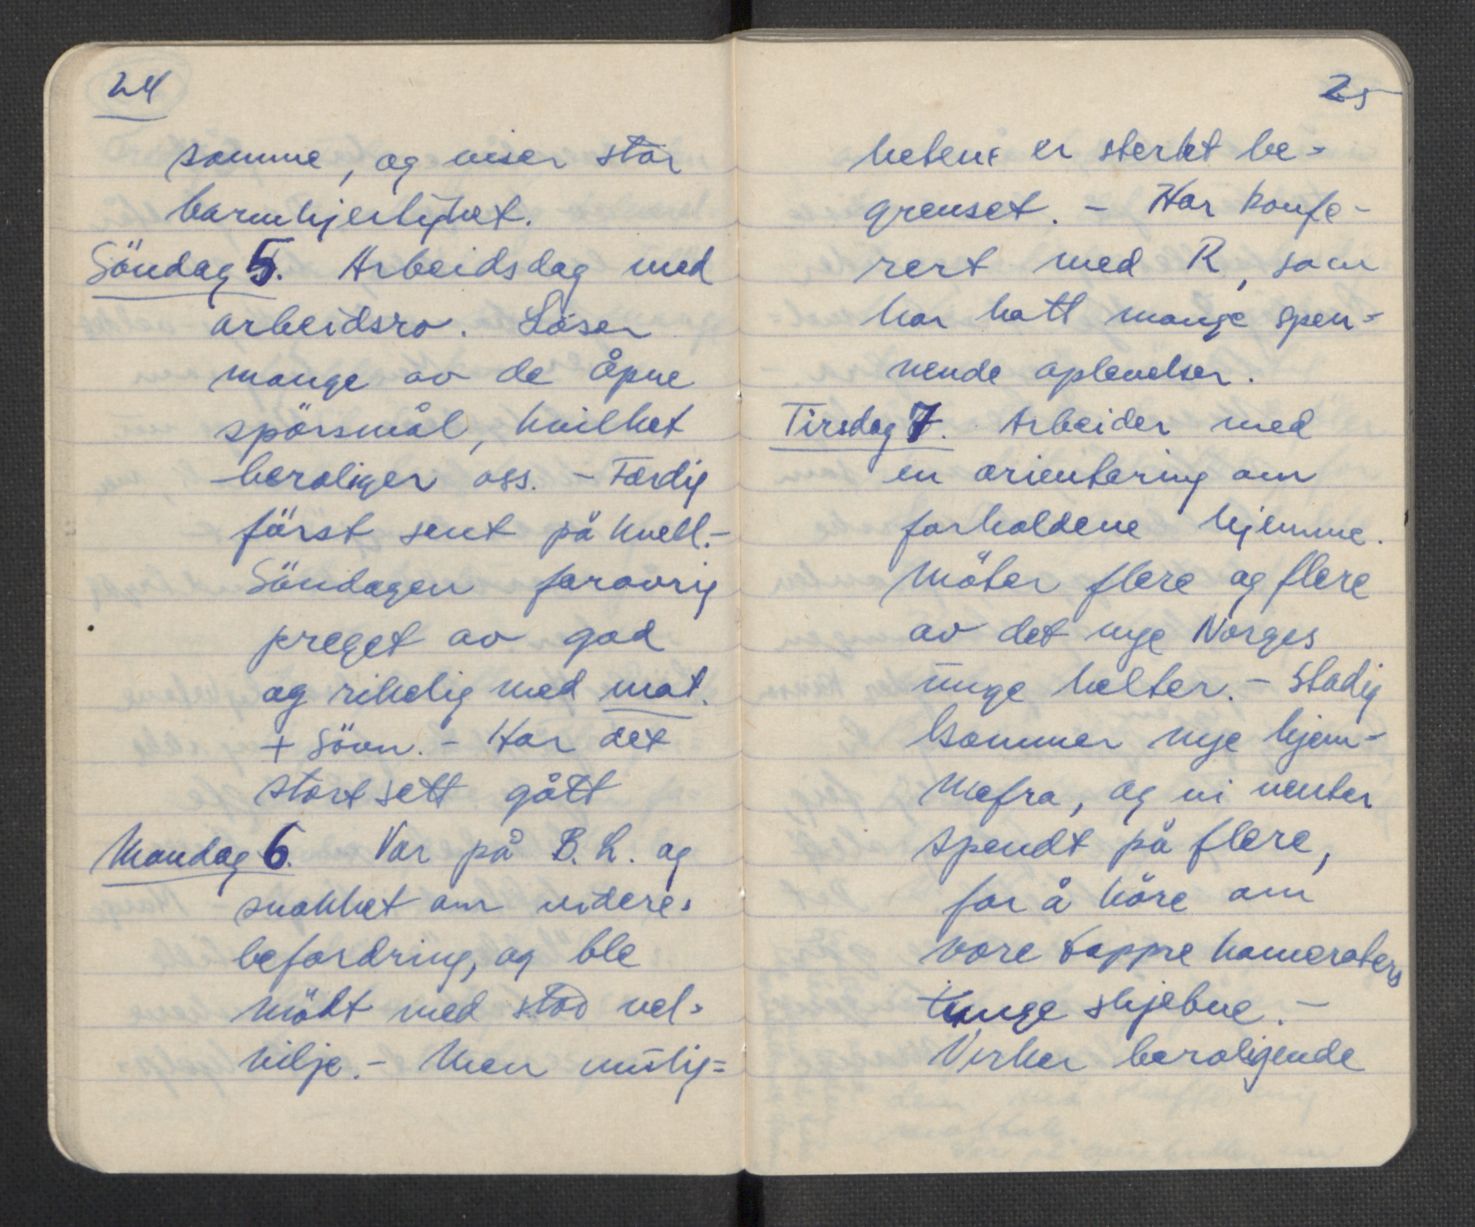 24
somme, og viser stor
barmhjertighet.
Söndag 5. Arbeidsdag med
arbeidsro. Löser
mange av de åpne
spörsmål, hvilket
beroliger oss. - Færdig
först sent på kvell. -
Söndagen forøvrig
preget av god
og rikelig med mat.
+ Sövn. - Har det
stort sett gått
Mandag 6. Var på B. L. og
snakket om videre-
befordring, og ble
mödt med stor vel-
vilje. - Men mulig=
25
hetene er sterkt be-
grenset. - Har konfe-
rert med R, som
har hatt mange spen-
nende oplevelser.
Tirsdag 7. Arbeider med
en orientering om
forholdene hjemme.
Möter flere og flere
av det nye Norges
unge helter. - Stadig
kommer nye hjem-
mefra, og vi venter
spendt på flere,
for å höre om
vore tappre kameraters
tunge skjebne. -
Virker beroligende